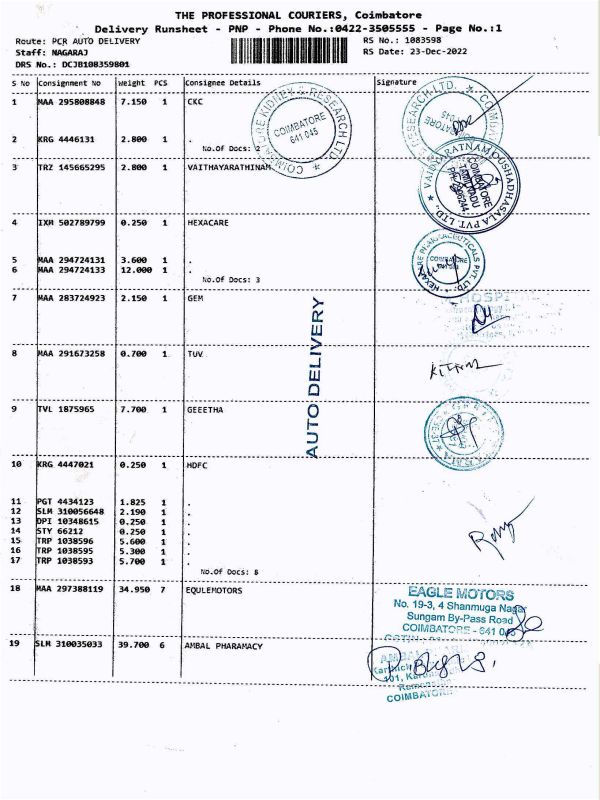 THE PROFESSIONAL COURIERS, Coimbatore
Delivery Runsheet - PNP - Phone No.:0422-3505555 - Page No.:1
Route: PCR AUTO DELIVERY RS No.: 1083598
Staff: NAGARAJ RS Date: 23-Dec-2022
DRS No.: DCJB108359801
S No Consignment No Weight PCS Consignee Details Signature
1 MAA 295808848 7.150 1 CKC
2 KRG 4446131 2.800 1 .
No.Of Docs: 2
COIMBATORE KIDNEY & RESEARCH LTD.
COIMBATORE
641 045
3 TRZ 145665295 2.800 1 VAITHAYARATHINAM
VAIDYARATNAM OUSHADHASALA PVT. LTD.
COIMBATORE
TAMILNADU
4 IXM 502789799 0.250 1 HEXACARE
5 MAA 294724131 3.600 1 .
6 MAA 294724133 12.000 1 .
No.Of Docs: 3
7 MAA 283724923 2.150 1 GEM
AUTO DELIVERY
8 MAA 291673258 0.700 1 TUV
9 TVL 1875965 7.700 1 GEEETHA
10 KRG 4447021 0.250 1 HDFC
11 PGT 4434123 1.825 1 .
12 SLM 310056648 2.190 1 .
13 DPI 10348615 0.250 1 .
14 STY 66212 0.250 1 .
15 TRP 1038596 5.600 1 .
16 TRP 1038595 5.300 1 .
17 TRP 1038593 5.700 1 .
No.Of Docs: 8
18 MAA 297388119 34.950 7 EQULEMOTORS
EAGLE MOTORS
No. 19-3, 4 Shanmuga Nagar
Sungam By-Pass Road
COIMBATORE - 641 045
19 SLM 310035033 39.700 6 AMBAL PHARAMACY
COIMBATORE